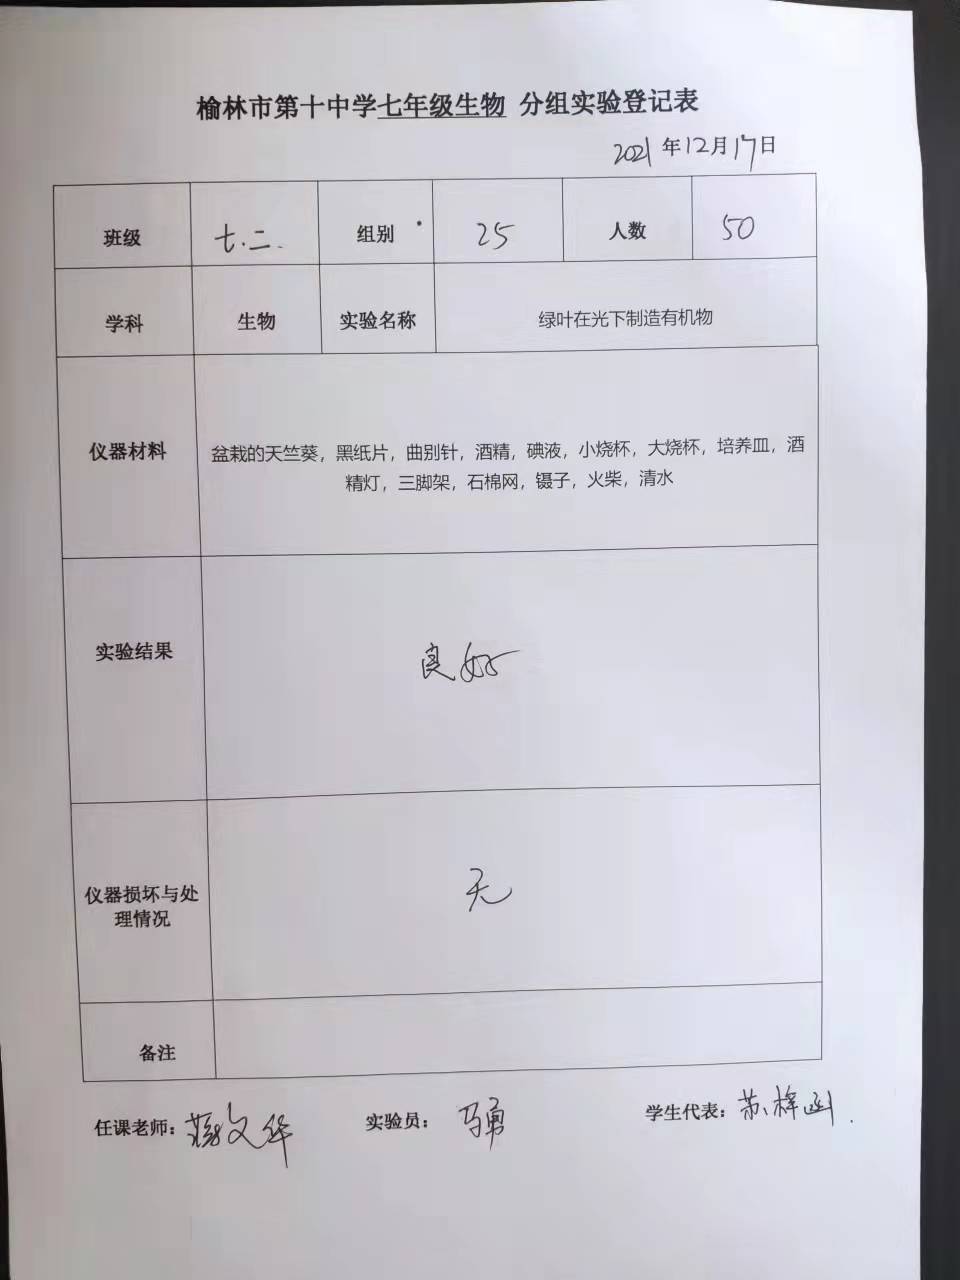 榆林市第十中学七年级生物 分组实验登记表
2021年12月17日
班级 七.二. 组别 25 人数 50
学科 生物 实验名称 绿叶在光下制造有机物
仪器材料
盆栽的天竺葵，黑纸片，曲别针，酒精，碘液，小烧杯，大烧杯，培养皿，酒
精灯，三脚架，石棉网，镊子，火柴，清水
实验结果 良好
仪器损坏与处
理情况
无
备注
任课老师： 文华 实验员： 马勇 学生代表：苏梓函